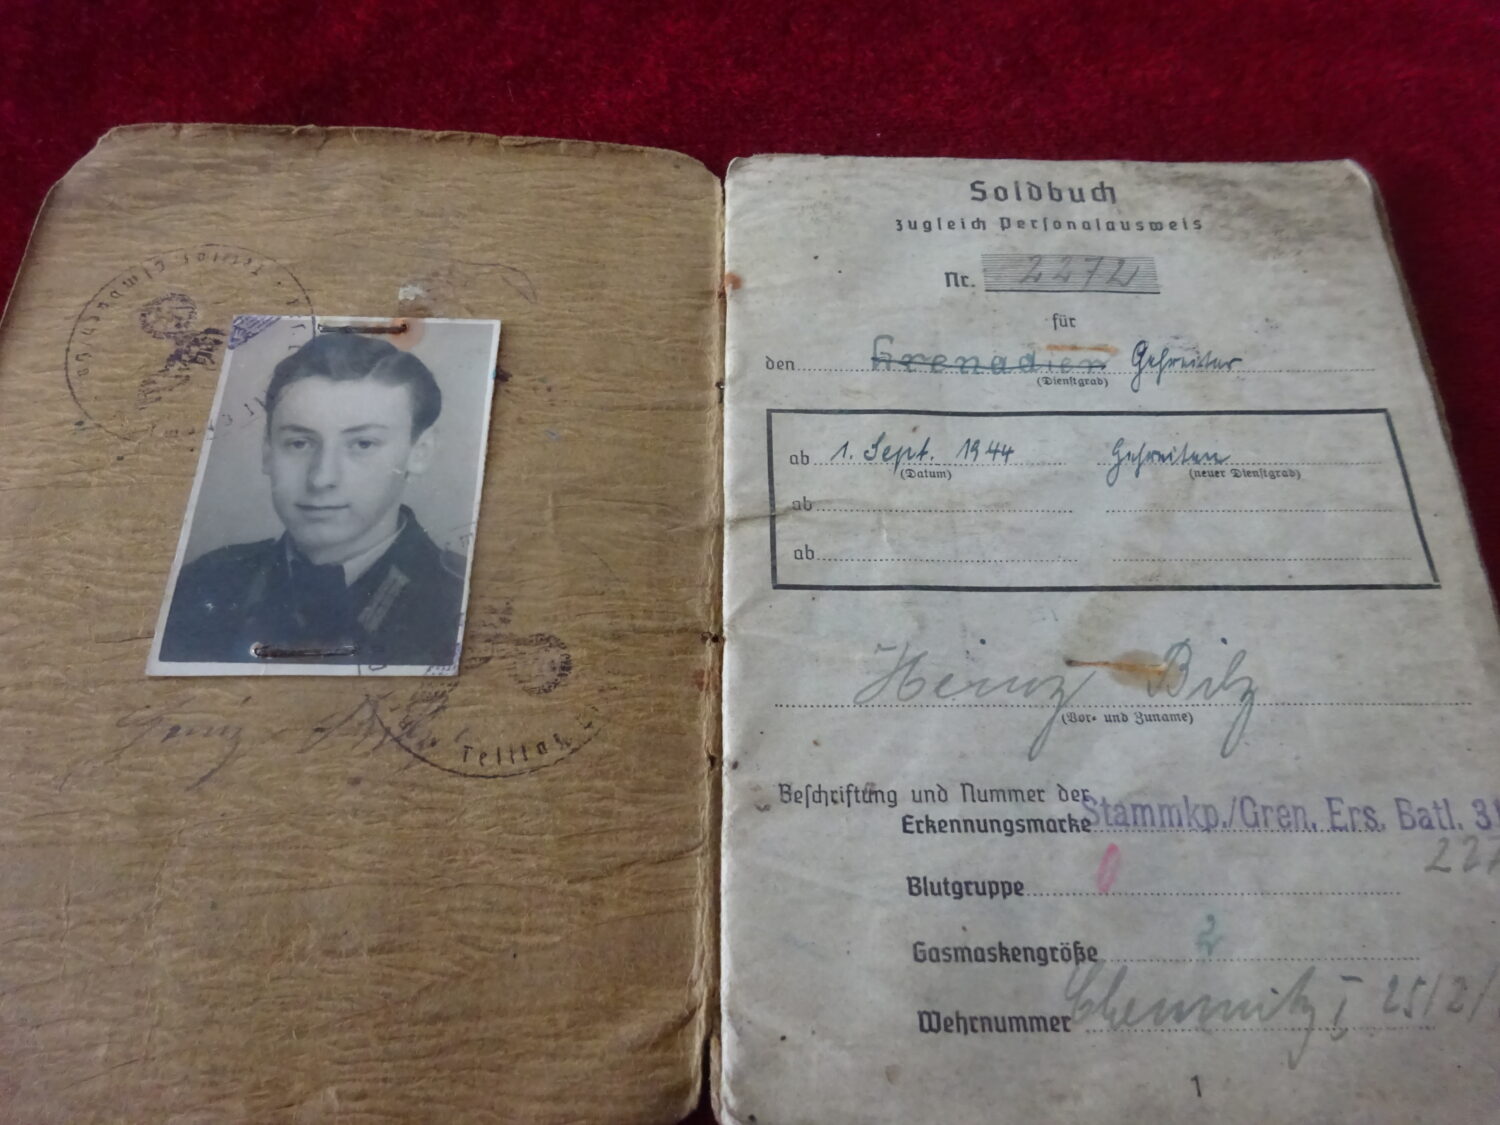 Heinz Bilz
Soldbuch
zugleich Personalausweis
Nr. 2272
für
den Grenadier Gefreiter
(Dienstgrad)
ab 1. Sept. 1944 Gefreiter
(Datum) (neuer Dienstgrad)
ab
ab
Heinz Bilz
(Vor- und Zuname)
Beschriftung und Nummer der
Erkennungsmarke Stammkp./Gren. Ers. Batl.
Blutgruppe 0
Gasmaskengröße 2
Wehrnummer Chemnitz I 25/2/
1